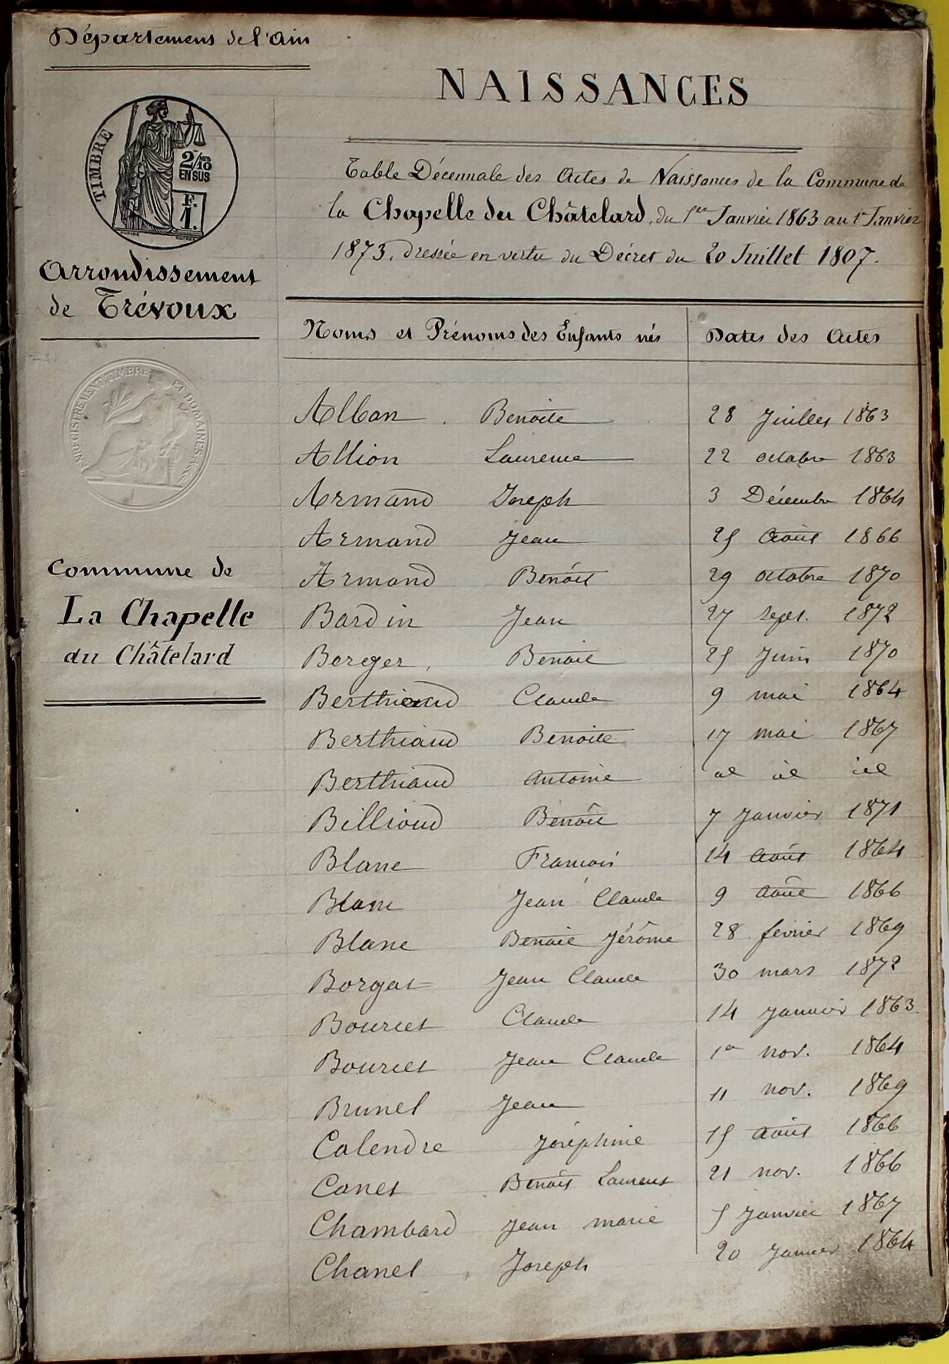 Département de l'Ain
TIMBRE
2/10 EN SUS
F.
1.
Arrondissement
de Trévoux
ENREGISTREMENT TIMBRE ET DOMAINES
Commune de
La Chapelle
du Châtelard
NAISSANCES
Table Décennale des Actes de Naissances de la Commune de
la Chapelle du Châtelard, du 1er Janvier 1863 au 1er Janvier
1873, dressée en vertu du Décret du 20 Juillet 1807.
Noms et Prénoms des Enfants nés Dates des Actes
Alban Benoite 28 Juillet 1863
Allion Laurence 22 octobre 1863
Armand Joseph 3 Décembre 1864
Armand Jean 25 Août 1866
Armand Benoît 29 octobre 1870
Bardin Jean 27 sept. 1872
Berger Benoit 25 Juin 1870
Berthiaud Claude 9 mai 1864
Berthiaud Benoite 17 mai 1867
Berthiaud Antoine id id id
Billioud Benoît 7 Janvier 1871
Blanc François 14 Août 1864
Blanc Jean Claude 9 Août 1866
Blanc Benoit Jérôme 28 février 1869
Borgat Jean Claude 30 mars 1872
Bourcet Claude 14 Janvier 1863
Bourcet Jean Claude 1er nov. 1864
Brunel Jean 11 nov. 1869
Calendre Joséphine 15 Août 1866
Canet Benoît Laurent 21 nov. 1866
Chambard Jean marie 5 Janvier 1867
Chanel Joseph 20 Janvier 1864